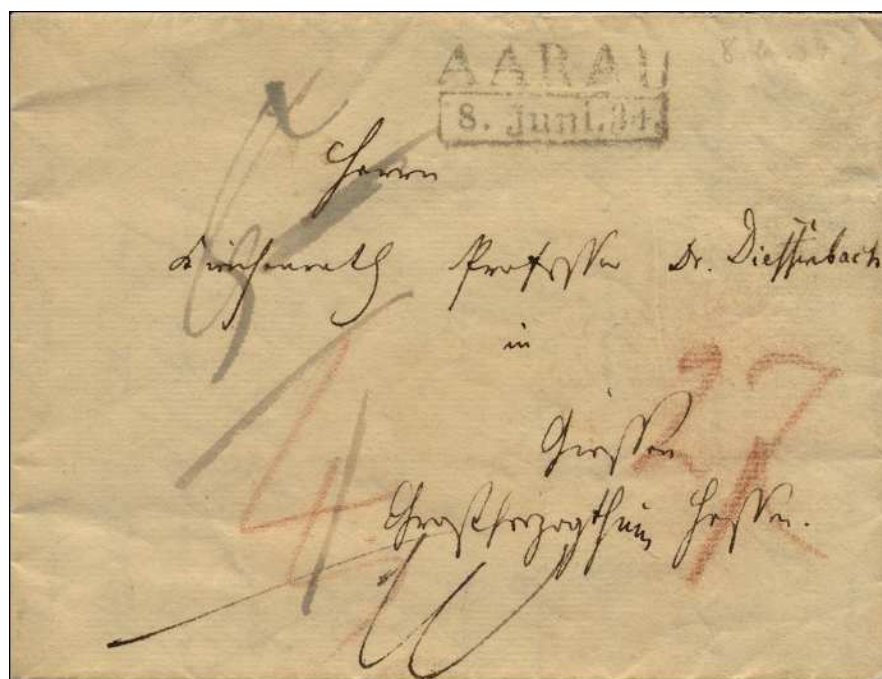 AARAU
8. Juni. 34
8. 6. 34
Herrn
Kirchenrath Professor Dr. Dieffenbach
in
Giessen
Großherzogthum Hessen.
27
4